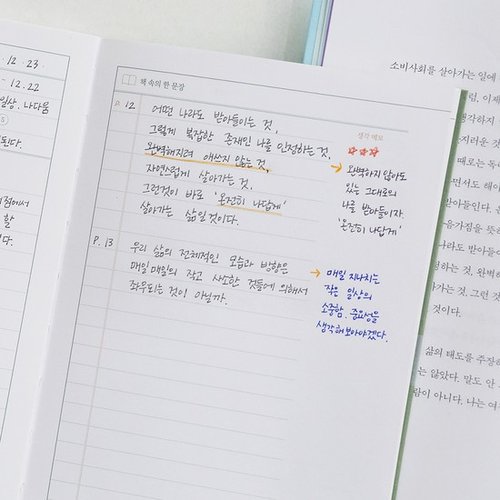 12. 23.
- 12.22
일상. 나다움
된다.
할
책 속의 한 문장
P. 12 어떤 나라도 받아들이는 것,
그렇게 복잡한 존재인 나를 인정하는 것,
완벽해지려 애쓰지 않는 것,
자연스럽게 살아가는 것,
그런것이 바로 '온전히 나답게'
살아가는 삶일 것이다.
생각 메모
→ 완벽하지 않아도
있는 그대로의
나를 받아들이자.
'온전히 나답게'
P. 13 우리 삶의 전체적인 모습과 방향은
매일매일의 작고 사소한 것들에 의해서
좌우되는 것이 아닐까.
→ 매일 지나치는
작은 일상의
소중함. 중요성을
생각해보아야겠다.
소비사회를 살아가는 일에
럼, 이제
생각하지
때로는 독
면서도 해야
받아들인다.
음가짐을 뜻하
나라도 받아들
정하는 것, 완벽
가는 것. 그런 것
것이다.
삶의 태도를 주장하
는 않았다. 말도 안
람이 아니다. 나는 여